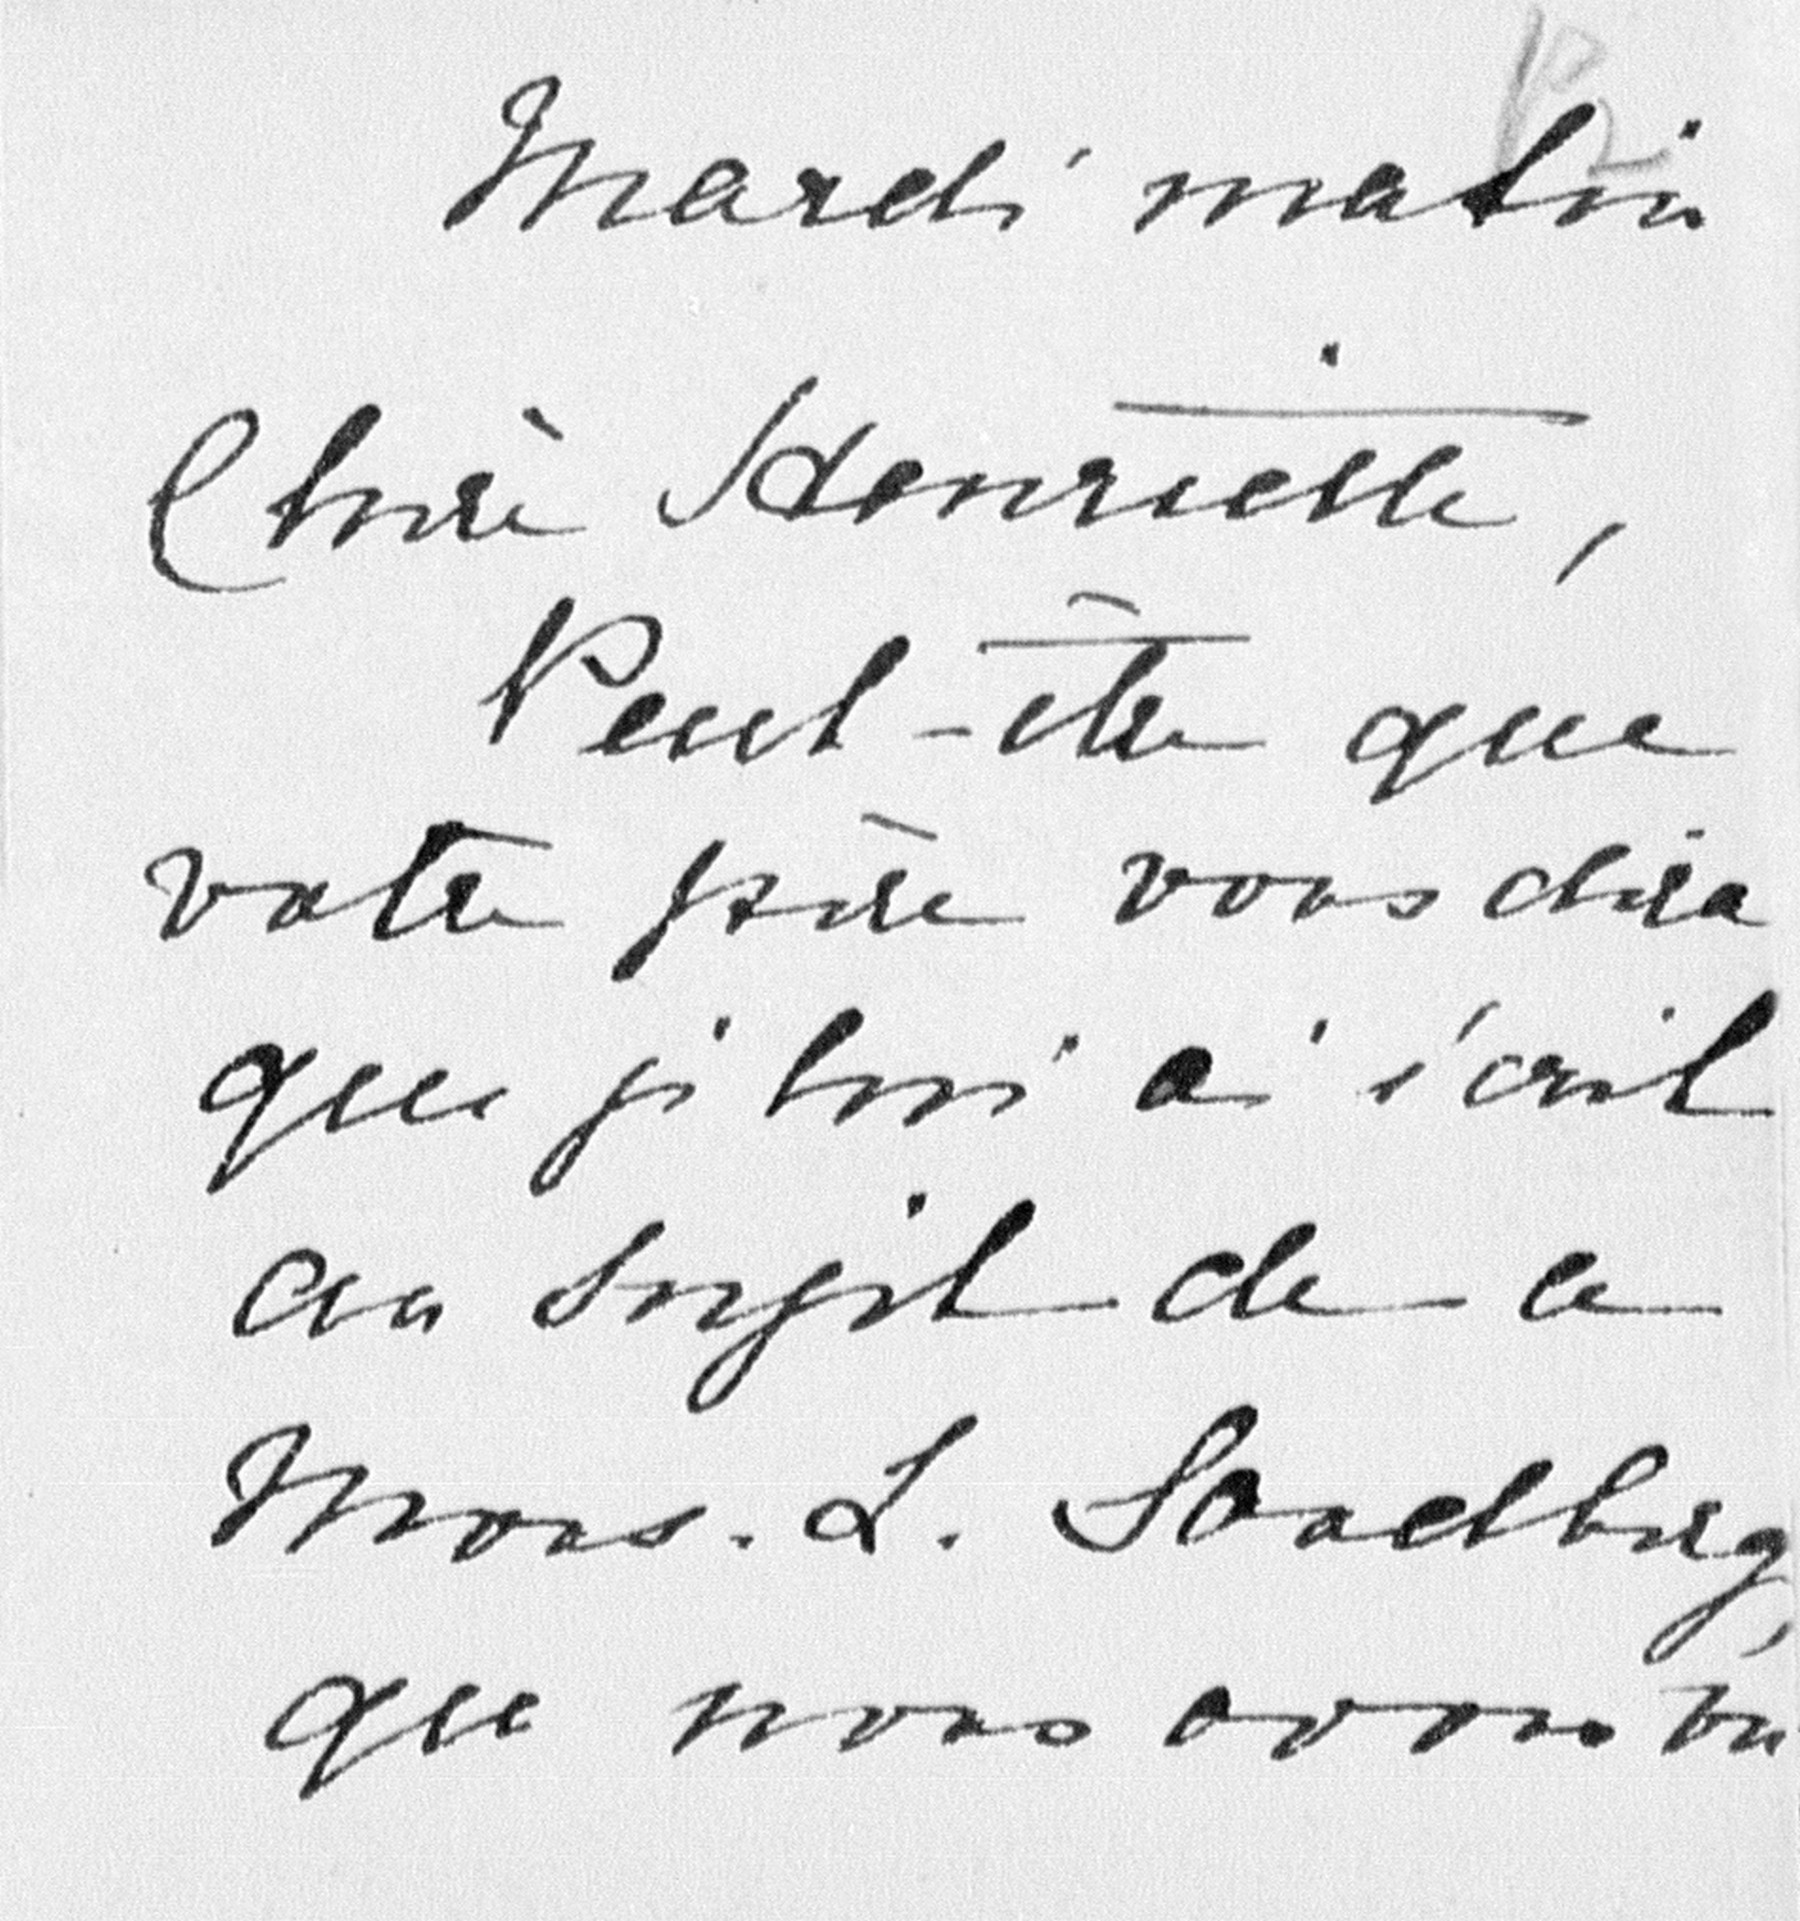 Mardi matin
Chère Henriette,
Peut-être que
votre père vous dira
que je lui ai écrit
au sujet de ce
Mons. L. Sandberg,
que nous avons vu